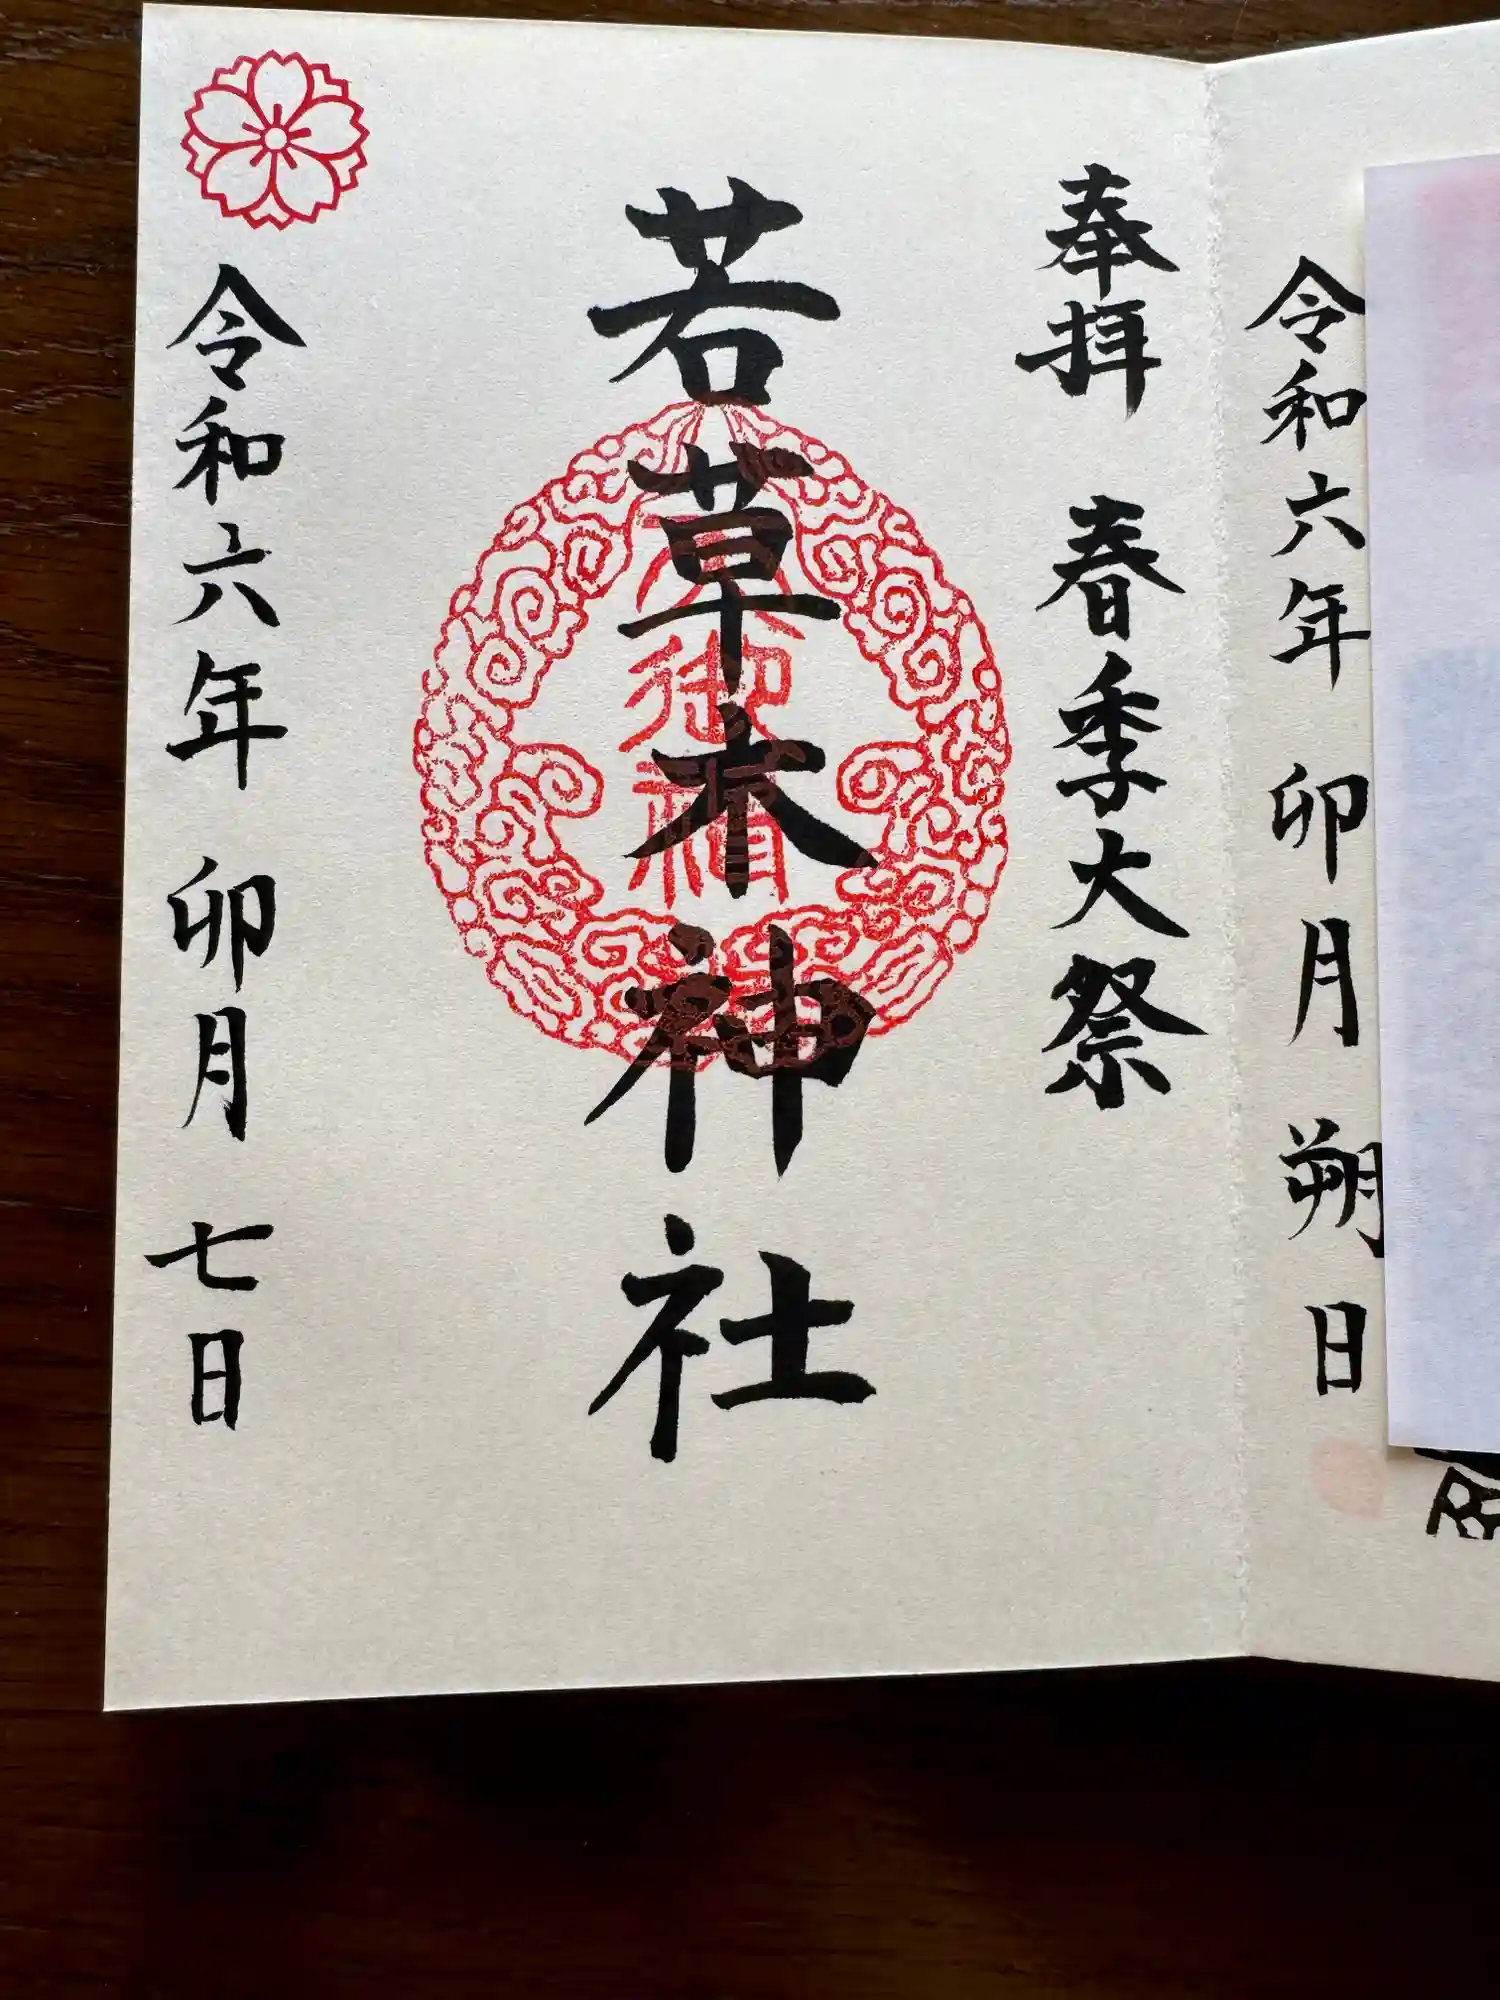 令和六年 卯月 朔日
奉拝 春季大祭
若草木神社
令和六年 卯月 七日